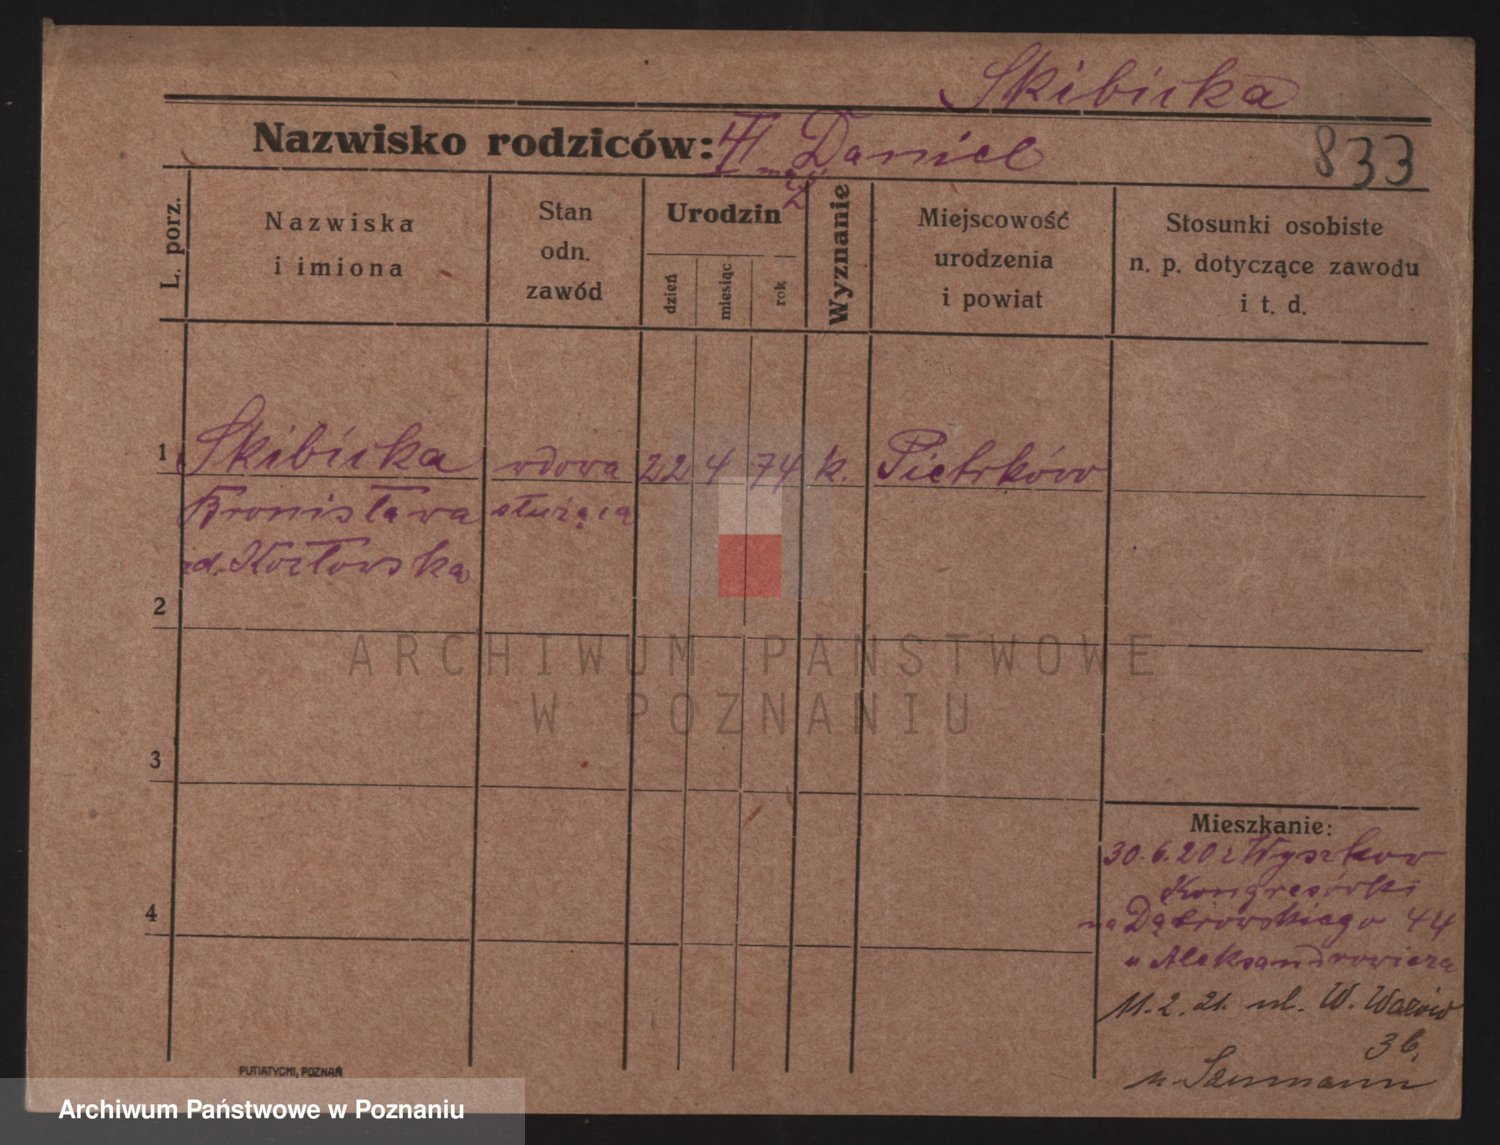 Skibicka
Nazwisko rodziców: Daniel
833
L. porz.
Nazwiska
i imiona
Stan
odn.
zawód
Urodzin
dzień
miesiąc
rok
Wyznanie
Miejscowość
urodzenia
i powiat
Stosunki osobiste
n. p. dotyczące zawodu
i t. d.
1 Skibicka wdowa 22 4 74 k. Pietrków
Bronisława służąca
Kozłowska
2
ARCHIWUM PAŃSTWOWE
W POZNANIU
3
Mieszkanie:
30.6.20 z Wyszkow
Kongresówki
4
na Dąbrowskiego 44
u Aleksandrowicza
11.2.21. ul. W. Wazów
36.
u.
PUTIATYCKI, POZNAŃ
Archiwum Państwowe w Poznaniu